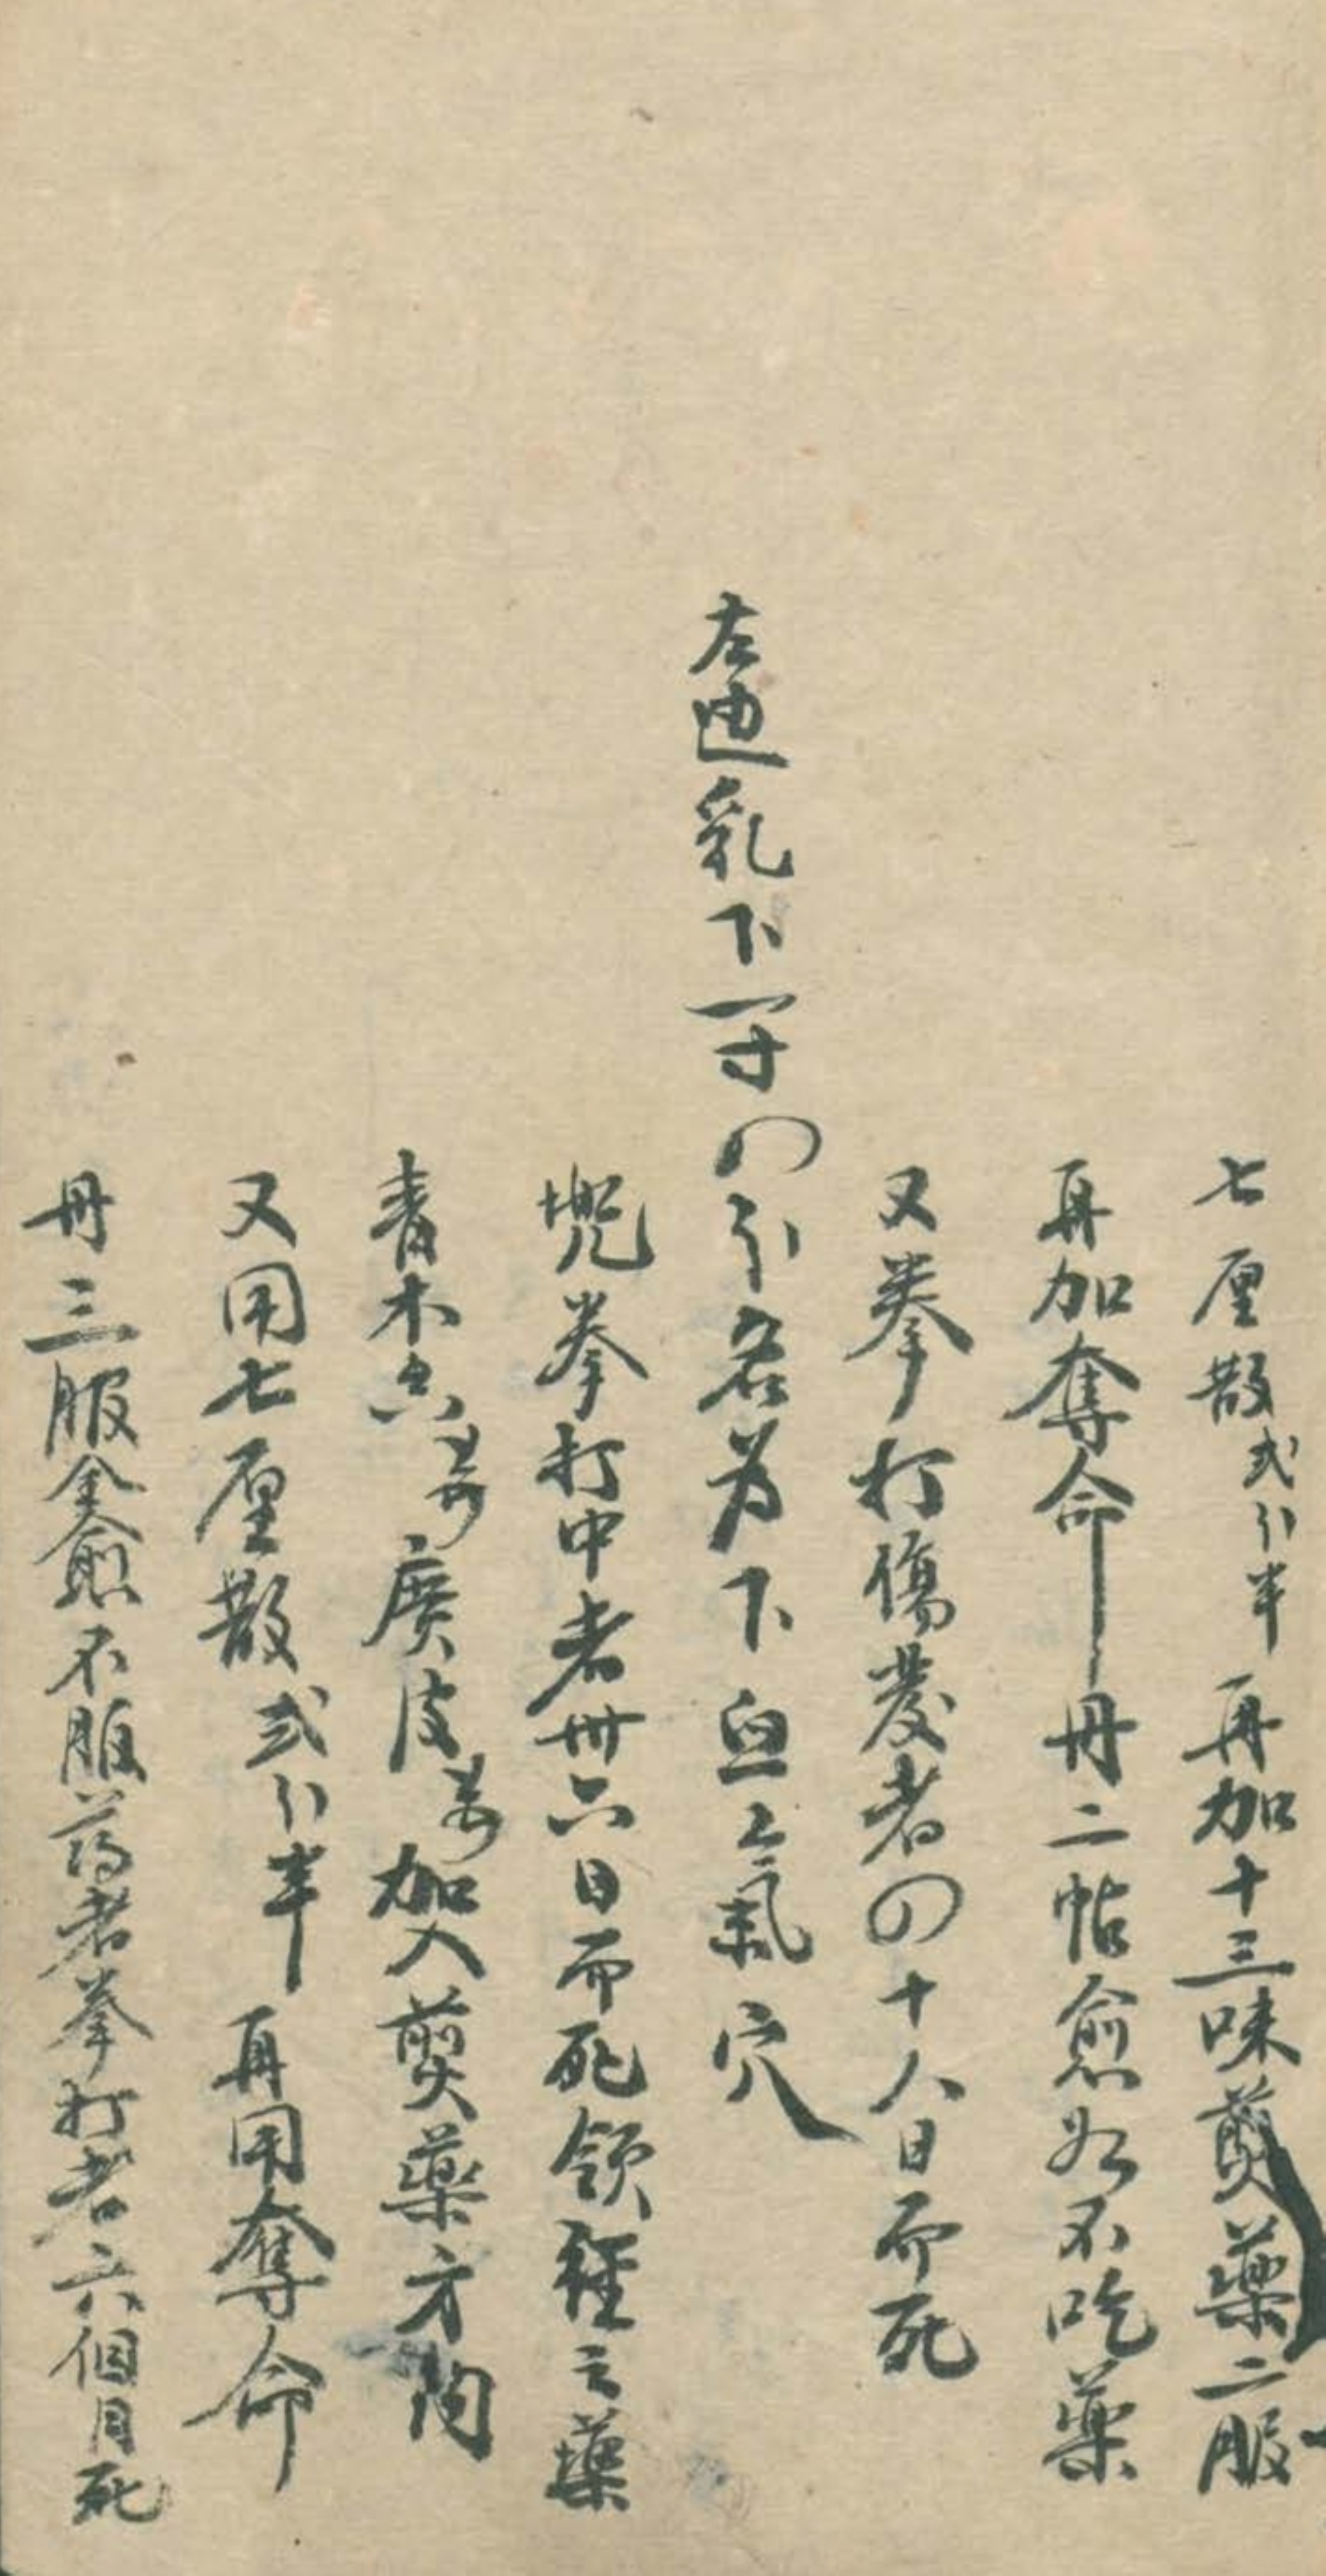 七厘散弍分半再加十三味煎藥二服
再加奪命丹二帖愈如不吃藥
又拳打傷發者四十八日而死
左边乳下一寸四分名为下血氣穴
兜拳打中者卅六日而死領經之藥
青木香 廣皮 加入煎藥方内
又用七厘散弍分半再用奪命
丹三服全愈不服药者拳打者六個月死